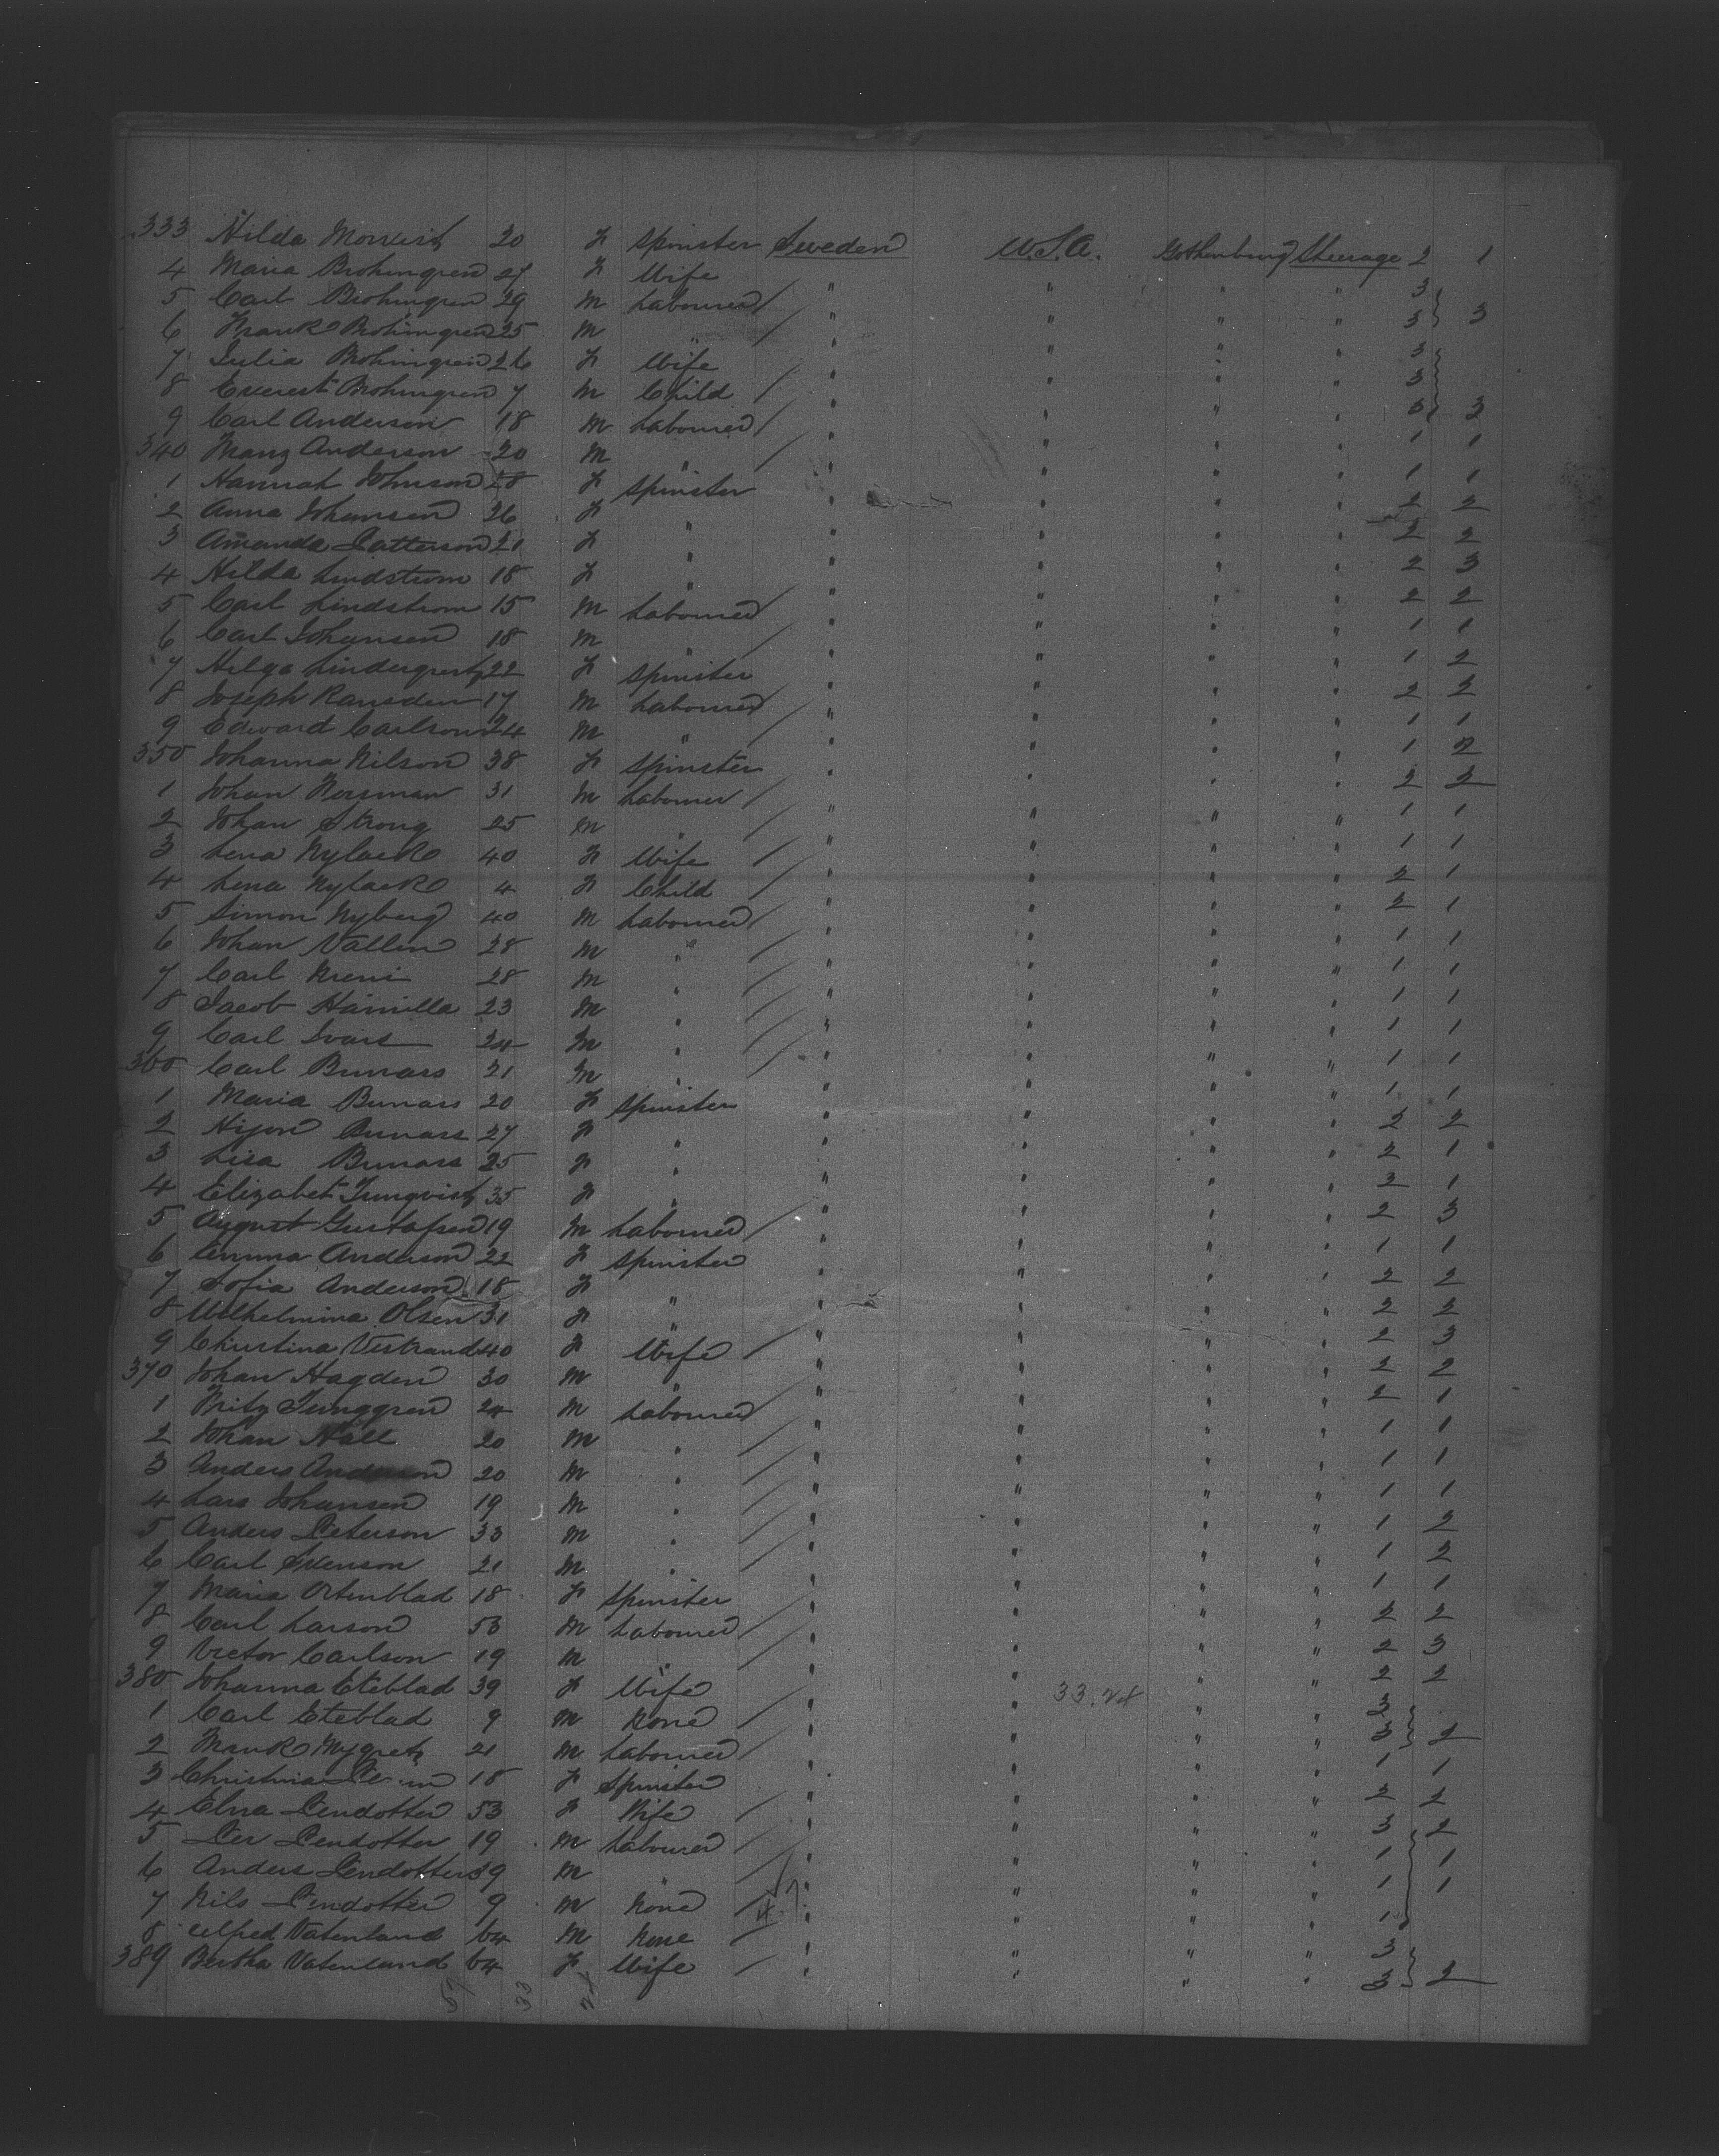 333 Hilda 20 F Spinster Sweden U.S.A. Gothenburg Steerage 2 1
4 Maria Brohmgren 27 F Wife " " " " 3
5 Carl Brohmgren 29 M Labourer " " " " 3 } 3
6 Frank Brohmgren 25 M " " " " " 3
7 Julia Brohmgren 26 F Wife " " " " 3
8 Everest Brohmgren 7 M Child " " " " 3 } 3
9 Carl Anderson 18 M Labourer " " " " 1 1
340 Franz Anderson 20 M " " " " " 1 1
1 Hannah Johnson 28 F Spinster " " " " 2 2
2 Anna Johansen 26 F " " " " " 2 2
3 Amanda Patterson 21 F " " " " " 2 3
4 Hilda Lindstrom 18 F " " " " " 2 2
5 Carl Lindstrom 15 M Labourer " " " " 1 1
6 Carl Johansen 18 M " " " " " 1 2
7 Helga 22 F Spinster " " " " 2 2
8 Joseph Ramsden 17 M Labourer " " " " 1 1
9 Edward Carlson 24 M " " " " " 1 2
350 Johanna Nilson 38 F Spinster " " " " 2 2
1 Johan Norsman 31 M Labourer " " " " 1 1
2 Johan Strong 25 M " " " " " 1 1
3 Lena Nylack 40 F Wife " " " " 2 1
4 Lena Nylack 4 F Child " " " " 2 1
5 Simon Nyberg 40 M Labourer " " " " 1 1
6 Johan Vallin 28 M " " " " " 1 1
7 Carl 28 M " " " " " 1 1
8 Jacob 23 M " " " " " 1 1
9 Carl Ivars 24 M " " " " " 1 1
360 Carl Bunars 21 M " " " " " 1 1
1 Maria Bunars 20 F Spinster " " " " 2 2
2 Bunars 27 F " " " " " 2 1
3 Lisa Bunars 25 F " " " " " 2 1
4 Elizabet Jungvist 35 F " " " " " 2 3
5 August Gustafsen 19 M Labourer " " " " 1 1
6 Emma Anderson 22 F Spinster " " " " 2 2
7 Sofia Anderson 18 F " " " " " 2 2
8 Wilhelmina Olsen 31 F " " " " " 2 3
9 Christina Vestrand 40 F Wife " " " " 2 2
370 Johan Hagden 30 M " " " " " 2 1
1 Fritz Junggren 24 M Labourer " " " " 1 1
2 Johan Hall 20 M " " " " " 1 1
3 Anders Anderson 20 M " " " " " 1 1
4 Lars Johansen 19 M " " " " " 1 2
5 Anders Peterson 33 M " " " " " 1 2
6 Carl Svenson 21 M " " " " " 1 1
7 Maria Ortenblad 18 F Spinster " " " " 2 2
8 Carl Larson 53 M Labourer " " " " 2 3
9 Victor Carlson 19 M " " " " " 2 2
380 Johanna Eteblad 39 F Wife " " 33.28 " " 3
1 Carl Eteblad 9 M None " " " " 3 } 2
2 Frank 21 M Labourer " " " " 1 1
3 Christina 18 F Spinster " " " " 2 2
4 Elna Pendotter 53 F Wife " " " " 3 2
5 Per Pendotter 19 M Labourer " " " " 1 1
6 Anders Pendotter 39 M " " " " " 1 1
7 Nils Pendotter 9 M None " " " " 1
8 Alfred Vatenland 64 M None " " " " 3
389 Bertha Vatenland 64 F Wife " " " " 3 } 2
33